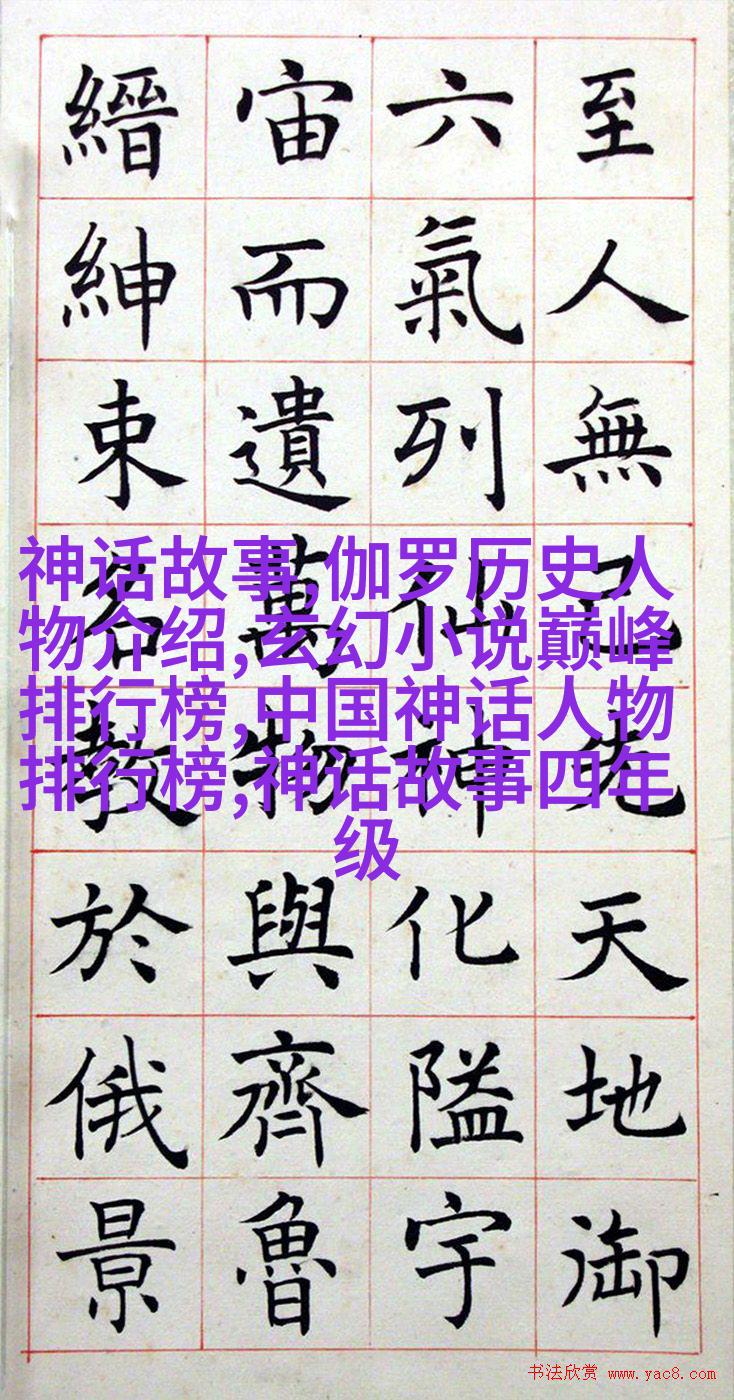 至人無己先天地御
六氣列仙神化隘宇
宙而遺萬物與齊魯
縉紳束名教於俄景
神话故事,伽罗历史人
物介绍,玄幻小说巅峰
排行榜,中国神话人物
排行榜,神话故事四年
级
书法欣赏 www.yac8.com